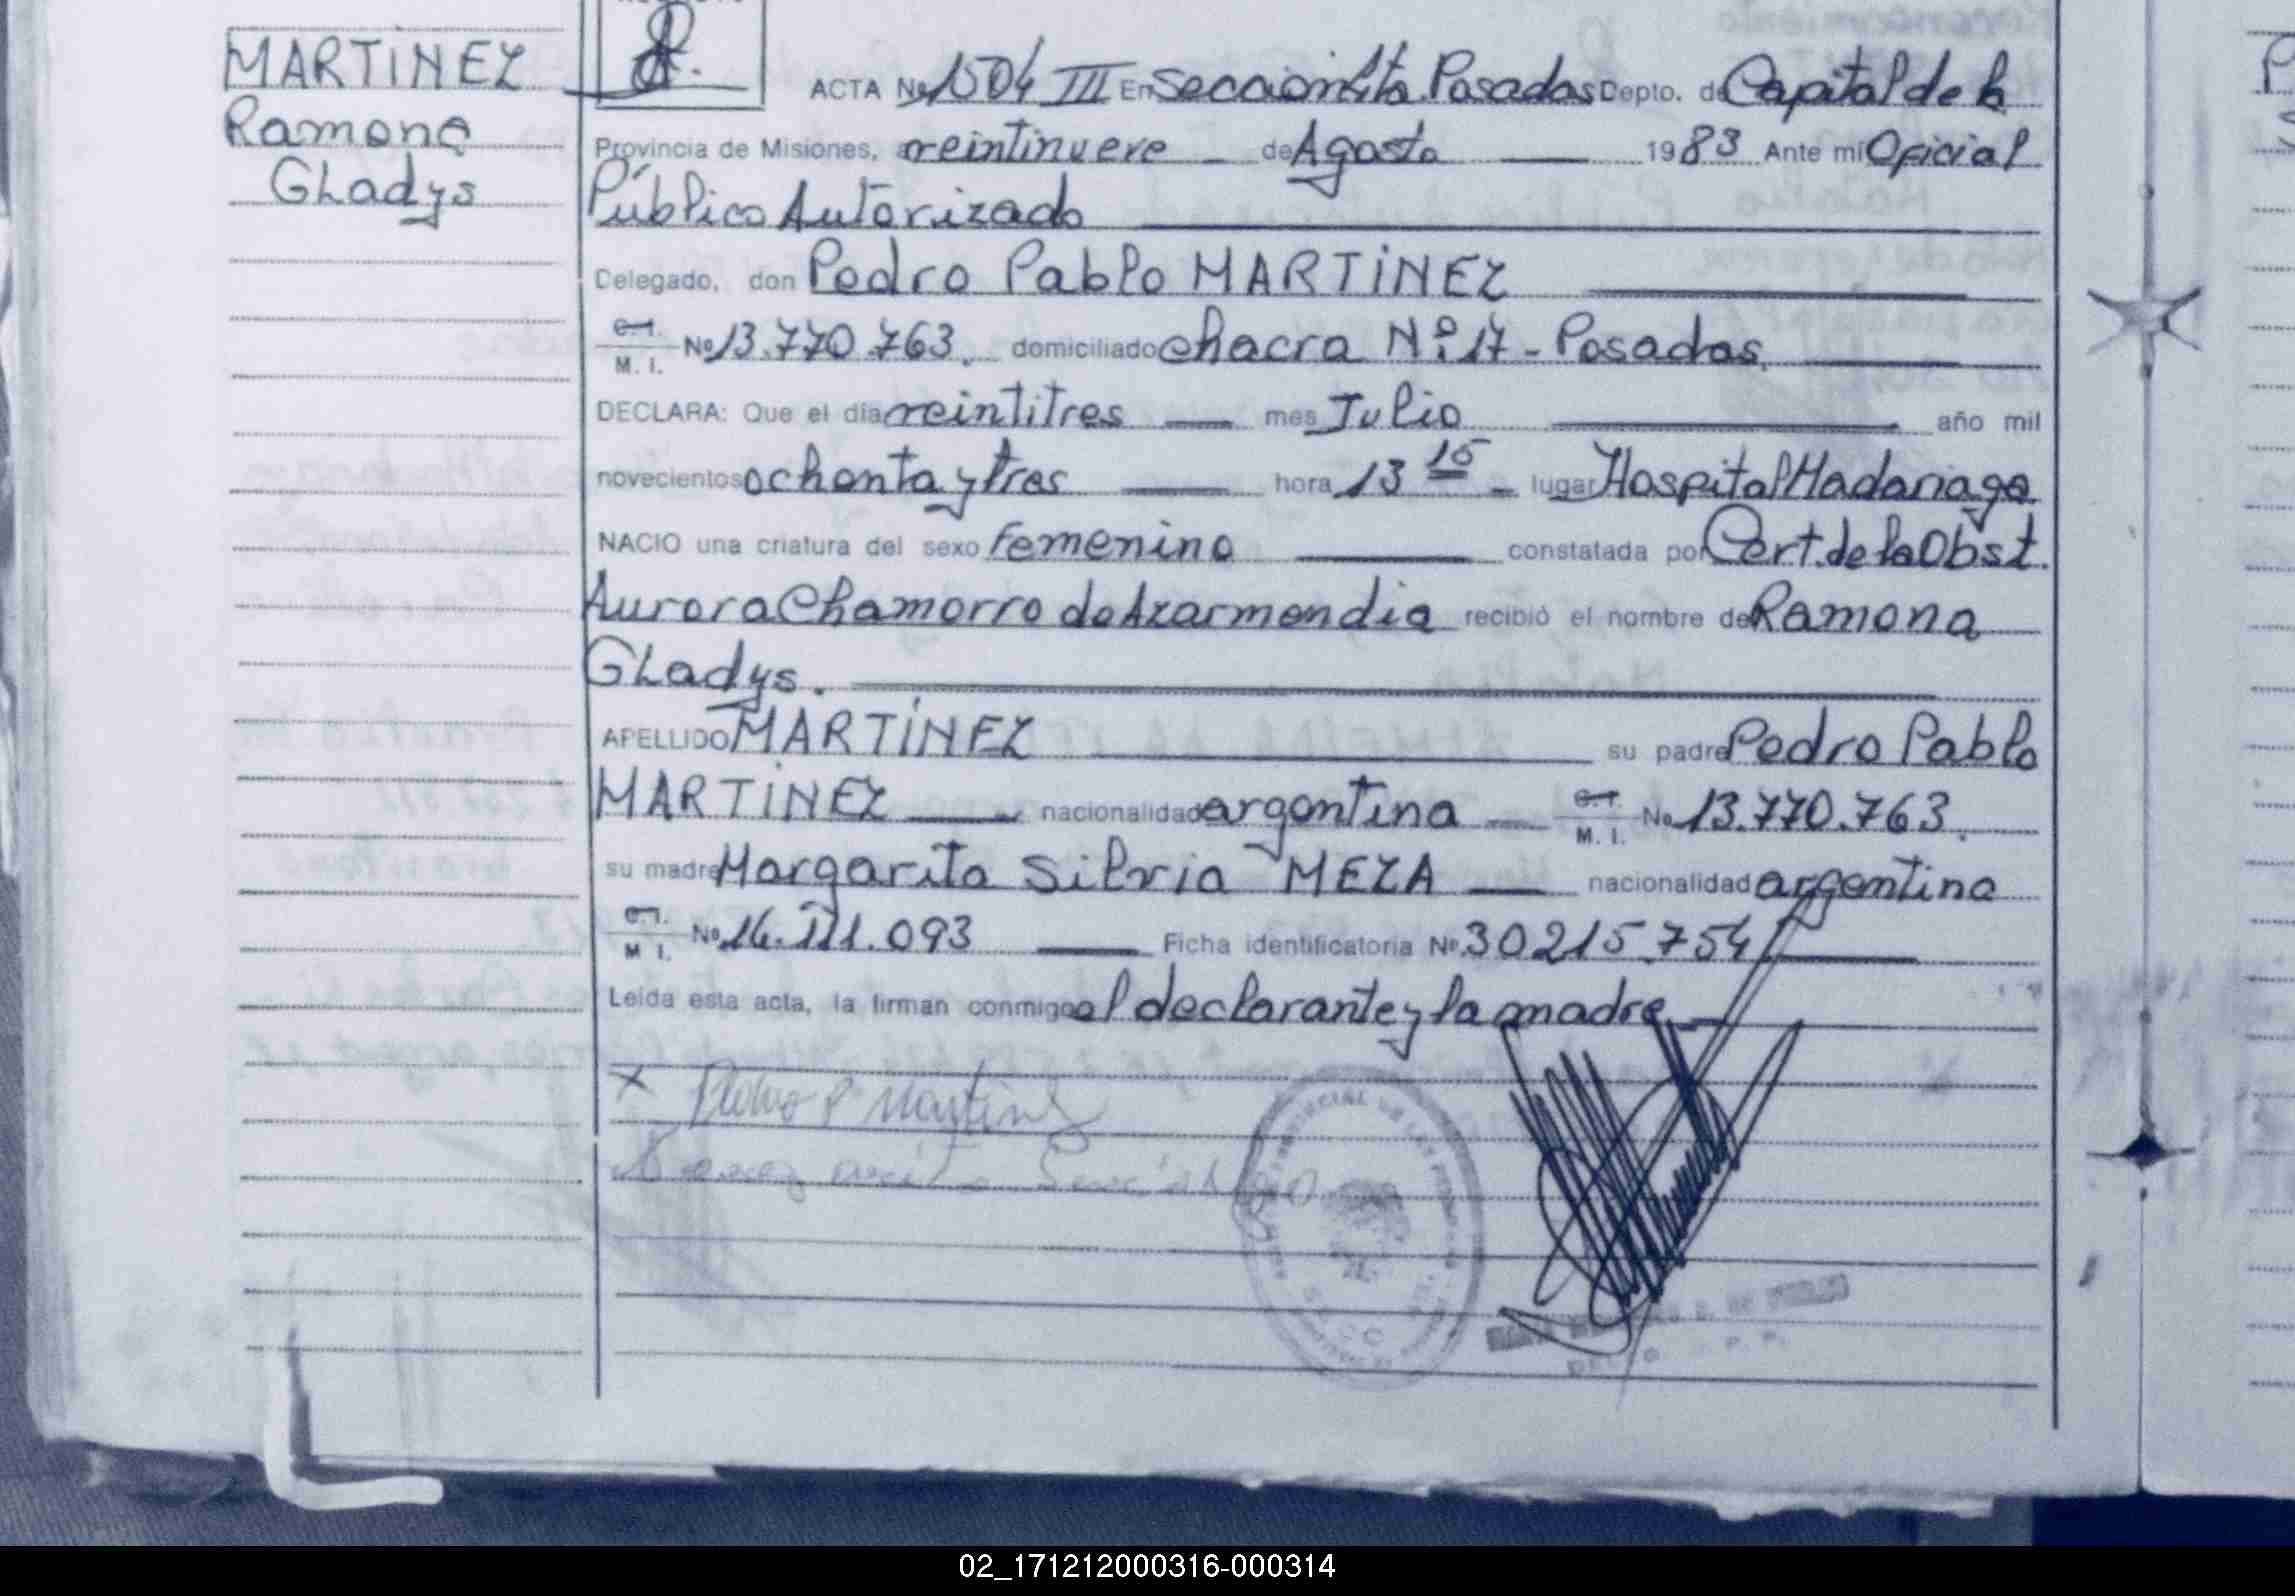 MARTINEZ
Ramona
Gladys
ACTA No 1504 III En Sección 4ta. Posadas Depto. de Capital de la
Provincia de Misiones, a veintinueve de Agosto 1983 Ante mi Oficial
Público Autorizado
Delegado, don Pedro Pablo MARTINEZ
C.I.
M. I. No 13.770.763. domiciliado chacra Nº 17 - Posadas.
DECLARA: Que el día veintitres mes Julio año mil
novecientos ochenta y tres hora 13 15 lugar Hospital Madariaga
NACIO una criatura del sexo femenino constatada por Cert. de la Obst.
Aurora Chamorro de Azarmendia recibió el nombre de Ramona
Gladys.
APELLIDO MARTÍNEZ su padre Pedro Pablo
MARTINEZ nacionalidad argentina C.I. M. I. No 13.770.763.
su madre Margarita Silvia MEZA nacionalidad argentina
C.I.
M. I. No 16.111.093 Ficha identificatoria No 30215.754
Leida esta acta, la firman conmigo el declarante y la madre
x Pedro P Martinez
02_171212000316-000314